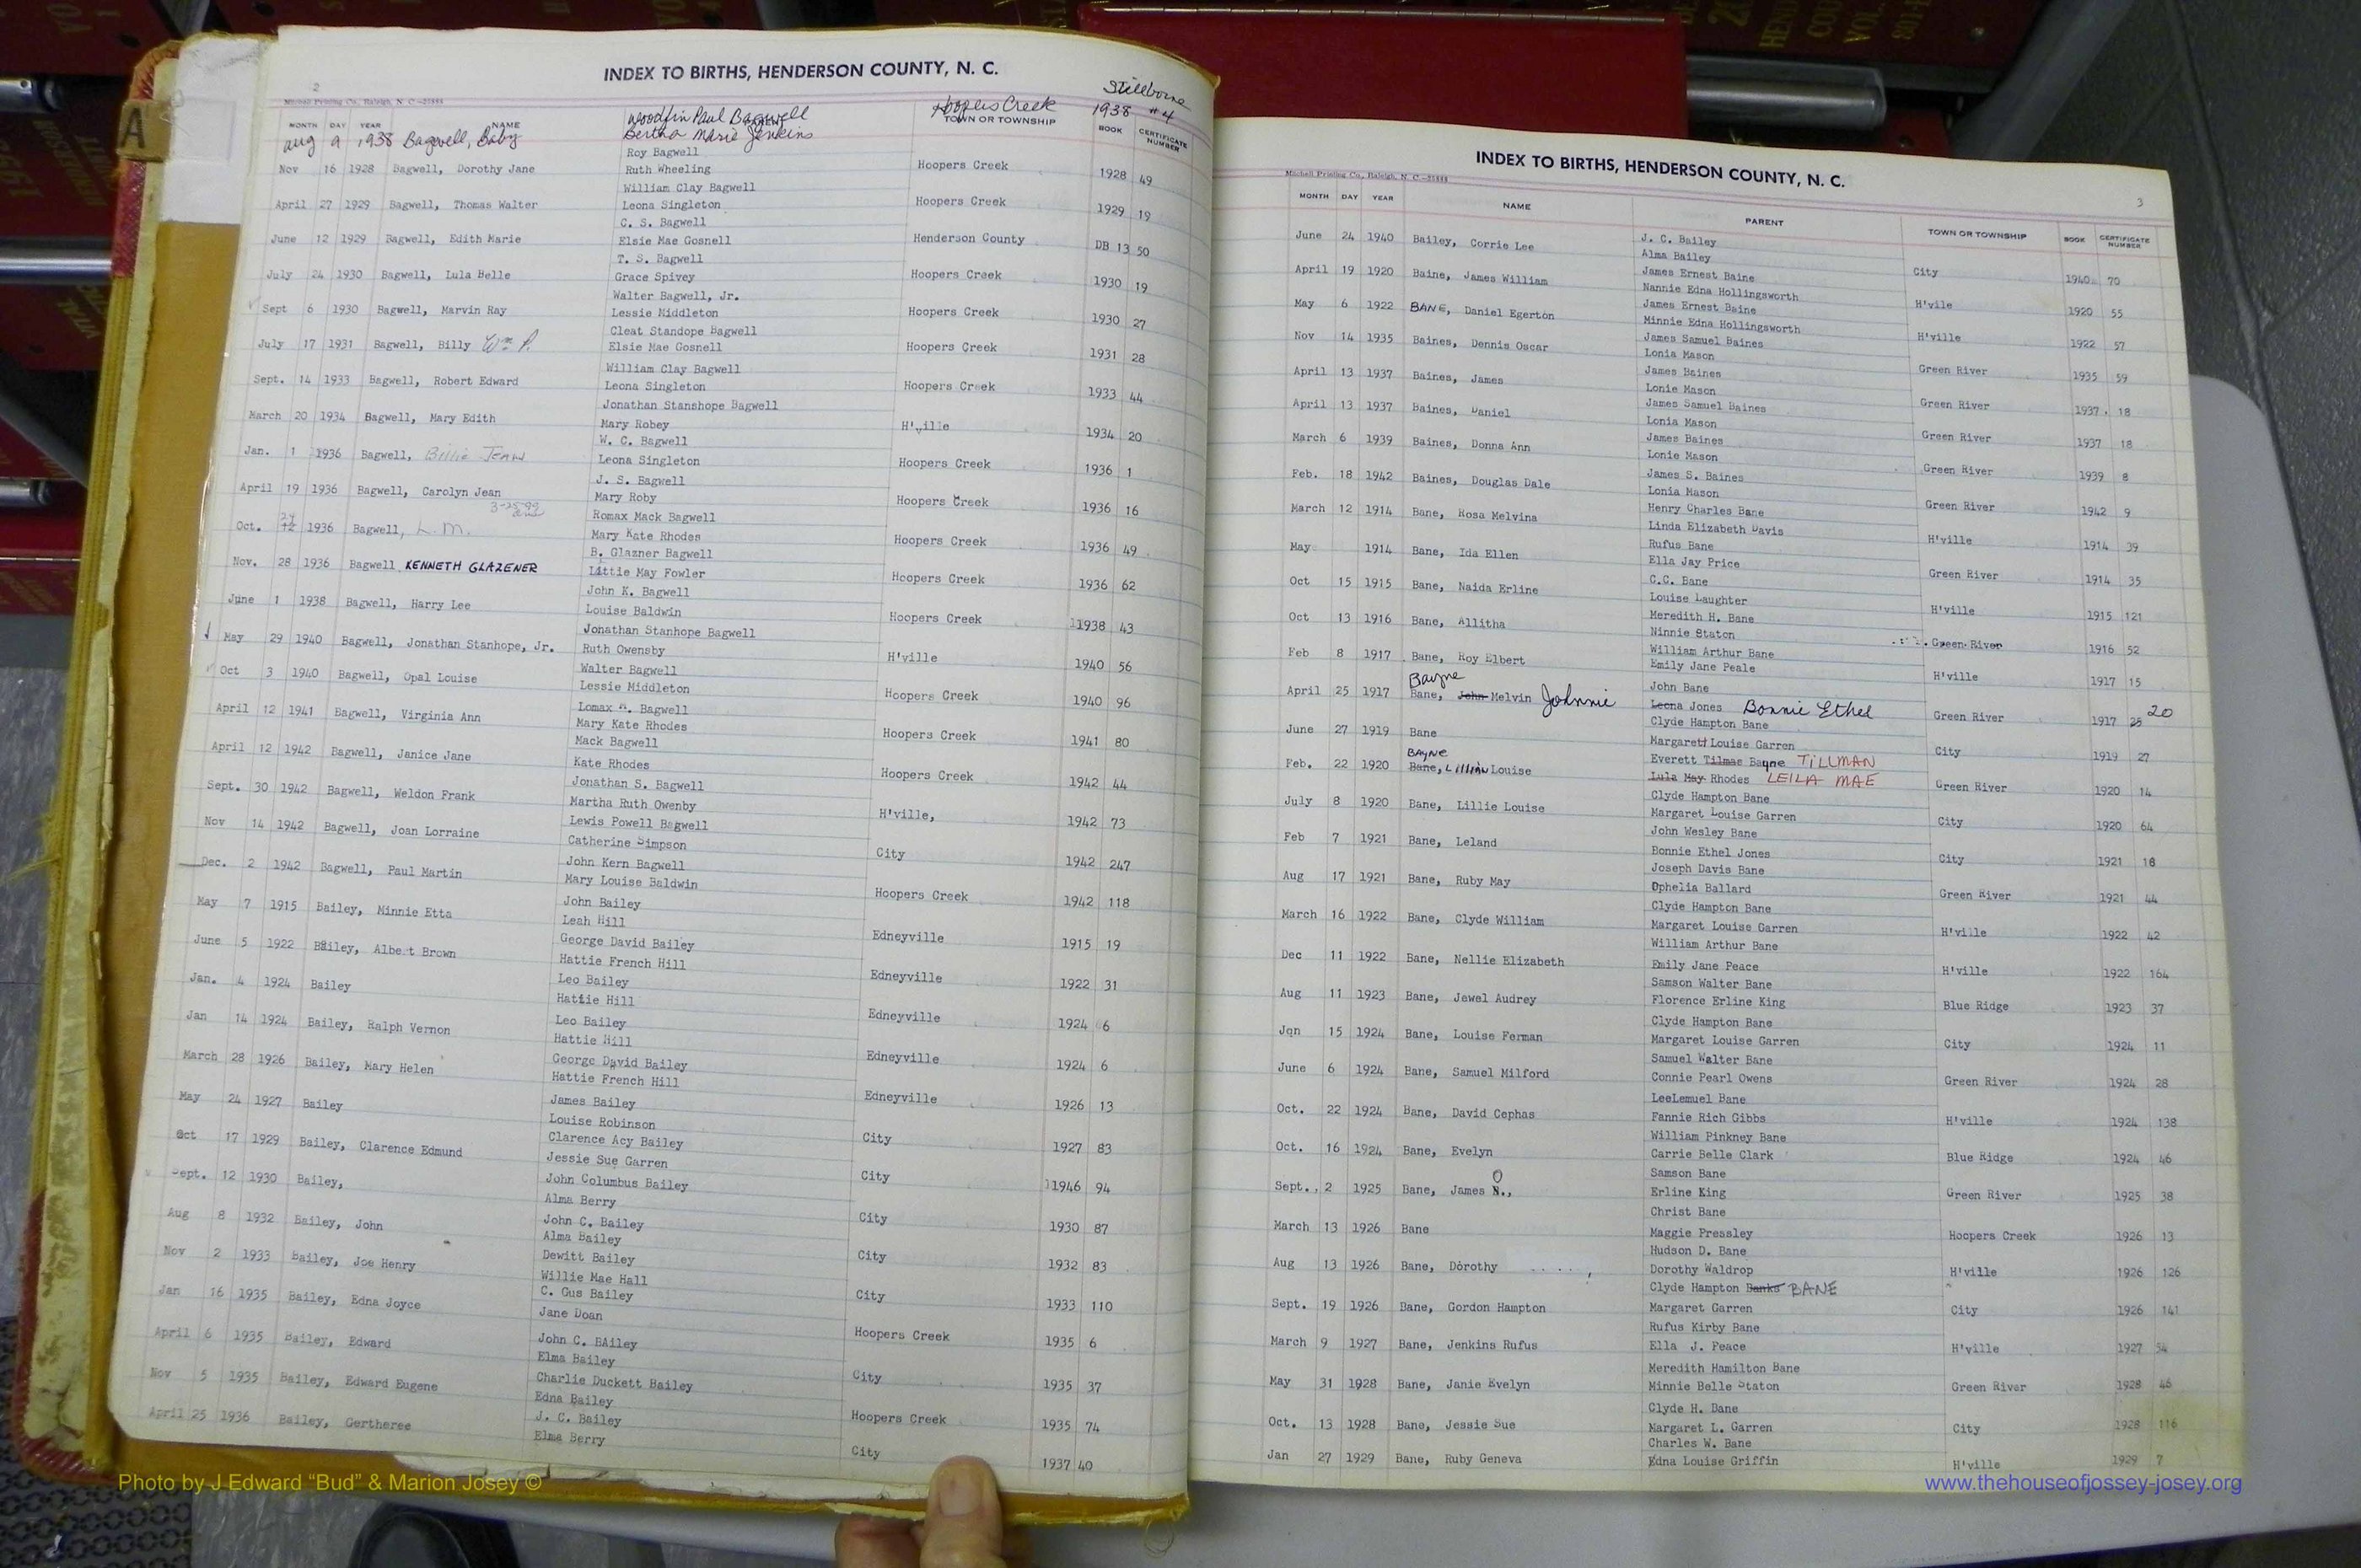 INDEX TO BIRTHS, HENDERSON COUNTY, N. C.
2
Stillborne
Mitchell Printing Co., Raleigh, N. C.—25888
Woodfin Paul Bagwell Hoopers Creek 1938 #4
MONTH DAY YEAR NAME TOWN OR TOWNSHIP BOOK CERTIFICATE NUMBER
Aug 9 1938 Bagwell, Baby Bertha Marie Jenkins
Roy Bagwell
Nov 16 1928 Bagwell, Dorothy Jane Ruth Wheeling Hoopers Creek 1928 49
William Clay Bagwell
April 27 1929 Bagwell, Thomas Walter Leona Singleton Hoopers Creek 1929 19
C. S. Bagwell
June 12 1929 Bagwell, Edith Marie Elsie Mae Gosnell Henderson County DB 13 50
T. S. Bagwell
July 24 1930 Bagwell, Lula Belle Grace Spivey Hoopers Creek 1930 19
Walter Bagwell, Jr.
Sept 6 1930 Bagwell, Marvin Ray Lessie Middleton Hoopers Creek 1930 27
Cleat Standope Bagwell
July 17 1931 Bagwell, Billy Wm P. Elsie Mae Gosnell Hoopers Creek 1931 28
William Clay Bagwell
Sept. 14 1933 Bagwell, Robert Edward Leona Singleton Hoopers Creek 1933 44
Jonathan Stanshope Bagwell
March 20 1934 Bagwell, Mary Edith Mary Robey H'ville 1934 20
W. C. Bagwell
Jan. 1 1936 Bagwell, Billie Jean Leona Singleton Hoopers Creek 1936 1
J. S. Bagwell
April 19 1936 Bagwell, Carolyn Jean Mary Roby Hoopers Creek 1936 16
3-25-99
Romax Mack Bagwell
Oct. 24 1936 Bagwell, L.M. Mary Kate Rhodes Hoopers Creek 1936 49
B. Glazner Bagwell
Nov. 28 1936 Bagwell KENNETH GLAZENER Littie May Fowler Hoopers Creek 1936 62
John K. Bagwell
June 1 1938 Bagwell, Harry Lee Louise Baldwin Hoopers Creek 1938 43
Jonathan Stanhope Bagwell
May 29 1940 Bagwell, Jonathan Stanhope, Jr. Ruth Owensby H'ville 1940 56
Walter Bagwell
Oct 3 1940 Bagwell, Opal Louise Lessie Middleton Hoopers Creek 1940 96
Lomax M. Bagwell
April 12 1941 Bagwell, Virginia Ann Mary Kate Rhodes Hoopers Creek 1941 80
Mack Bagwell
April 12 1942 Bagwell, Janice Jane Kate Rhodes Hoopers Creek 1942 44
Jonathan S. Bagwell
Sept. 30 1942 Bagwell, Weldon Frank Martha Ruth Owenby H'ville, 1942 73
Lewis Powell Bagwell
Nov 14 1942 Bagwell, Joan Lorraine Catherine Simpson City 1942 247
John Kern Bagwell
Dec. 2 1942 Bagwell, Paul Martin Mary Louise Baldwin Hoopers Creek 1942 118
John Bailey
May 7 1915 Bailey, Minnie Etta Leah Hill Edneyville 1915 19
George David Bailey
June 5 1922 Bailey, Albert Brown Hattie French Hill Edneyville 1922 31
Leo Bailey
Jan. 4 1924 Bailey Hattie Hill Edneyville 1924 6
Leo Bailey
Jan 14 1924 Bailey, Ralph Vernon Hattie Hill Edneyville 1924 6
George David Bailey
March 28 1926 Bailey, Mary Helen Hattie French Hill Edneyville 1926 13
James Bailey
May 24 1927 Bailey Louise Robinson City 1927 83
Clarence Acy Bailey
Oct 17 1929 Bailey, Clarence Edmund Jessie Sue Garren City 1946 94
John Columbus Bailey
Sept. 12 1930 Bailey, Alma Berry City 1930 87
John C. Bailey
Aug 8 1932 Bailey, John Alma Bailey City 1932 83
Dewitt Bailey
Nov 2 1933 Bailey, Joe Henry Willie Mae Hall City 1933 110
C. Gus Bailey
Jan 16 1935 Bailey, Edna Joyce Jane Doan Hoopers Creek 1935 6
John C. BAiley
April 6 1935 Bailey, Edward Elma Bailey City 1935 37
Charlie Duckett Bailey
Nov 5 1935 Bailey, Edward Eugene Edna Bailey Hoopers Creek 1935 74
J. C. Bailey
April 25 1936 Bailey, Gertheree Elma Berry City 1937 40
INDEX TO BIRTHS, HENDERSON COUNTY, N. C.
Mitchell Printing Co., Raleigh, N. C.—25888
3
MONTH DAY YEAR NAME PARENT TOWN OR TOWNSHIP BOOK CERTIFICATE NUMBER
J. C. Bailey
June 24 1940 Bailey, Corrie Lee Alma Bailey City 1940 70
James Ernest Baine
April 19 1920 Baine, James William Nannie Edna Hollingsworth H'vile 1920 55
James Ernest Baine
May 6 1922 BANE, Daniel Egerton Minnie Edna Hollingsworth H'ville 1922 57
James Samuel Baines
Nov 14 1935 Baines, Dennis Oscar Lonia Mason Green River 1935 59
James Baines
April 13 1937 Baines, James Lonie Mason Green River 1937. 18
James Samuel Baines
April 13 1937 Baines, Daniel Lonia Mason Green River 1937 18
James Baines
March 6 1939 Baines, Donna Ann Lonie Mason Green River 1939 8
James S. Baines
Feb. 18 1942 Baines, Douglas Dale Lonia Mason Green River 1942 9
Henry Charles Bane
March 12 1914 Bane, Rosa Melvina Linda Elizabeth Davis H'ville 1914 39
Rufus Bane
May 1914 Bane, Ida Ellen Ella Jay Price Green River 1914 35
C.C. Bane
Oct 15 1915 Bane, Naida Erline Louise Laughter H'ville 1915 121
Meredith H. Bane
Oct 13 1916 Bane, Allitha Ninnie Staton Green River 1916 52
William Arthur Bane
Feb 8 1917 Bane, Roy Elbert Emily Jane Peale H'ville 1917 15
Bayne John Bane
April 25 1917 Bane, John Melvin Johnnie Leona Jones Bonnie Ethel Green River 1917 25 20
Clyde Hampton Bane
June 27 1919 Bane Margarett Louise Garren City 1919 27
BAYNE Everett Tilmas Bayne TILLMAN
Feb. 22 1920 Bane, LILLIAN Louise Lula May Rhodes LEILA MAE Green River 1920 14
Clyde Hampton Bane
July 8 1920 Bane, Lillie Louise Margaret Louise Garren City 1920 64
John Wesley Bane
Feb 7 1921 Bane, Leland Bonnie Ethel Jones City 1921 18
Joseph Davis Bane
Aug 17 1921 Bane, Ruby May Ophelia Ballard Green River 1921 44
Clyde Hampton Bane
March 16 1922 Bane, Clyde William Margaret Louise Garren H'ville 1922 42
William Arthur Bane
Dec 11 1922 Bane, Nellie Elizabeth Emily Jane Peace H'ville 1922 164
Samson Walter Bane
Aug 11 1923 Bane, Jewel Audrey Florence Erline King Blue Ridge 1923 37
Clyde Hampton Bane
Jan 15 1924 Bane, Louise Ferman Margaret Louise Garren City 1924 11
Samuel Walter Bane
June 6 1924 Bane, Samuel Milford Connie Pearl Owens Green River 1924 28
LeeLemuel Bane
Oct. 22 1924 Bane, David Cephas Fannie Rich Gibbs H'ville 1924 138
William Pinkney Bane
Oct. 16 1924 Bane, Evelyn Carrie Belle Clark Blue Ridge 1924 46
O Samson Bane
Sept. 2 1925 Bane, James N., Erline King Green River 1925 38
Christ Bane
March 13 1926 Bane Maggie Pressley Hoopers Creek 1926 13
Hudson D. Bane
Aug 13 1926 Bane, Dorothy Dorothy Waldrop H'ville 1926 126
Clyde Hampton Banks BANE
Sept. 19 1926 Bane, Gordon Hampton Margaret Garren City 1926 141
Rufus Kirby Bane
March 9 1927 Bane, Jenkins Rufus Ella J. Peace H'ville 1927 54
Meredith Hamilton Bane
May 31 1928 Bane, Janie Evelyn Minnie Belle Staton Green River 1928 46
Clyde H. Bane
Oct. 13 1928 Bane, Jessie Sue Margaret L. Garren City 1928 116
Charles W. Bane
Jan 27 1929 Bane, Ruby Geneva Edna Louise Griffin H'ville 1929 7
Photo by J Edward “Bud” & Marion Josey ©
www.thehouseofjossey-josey.org
A